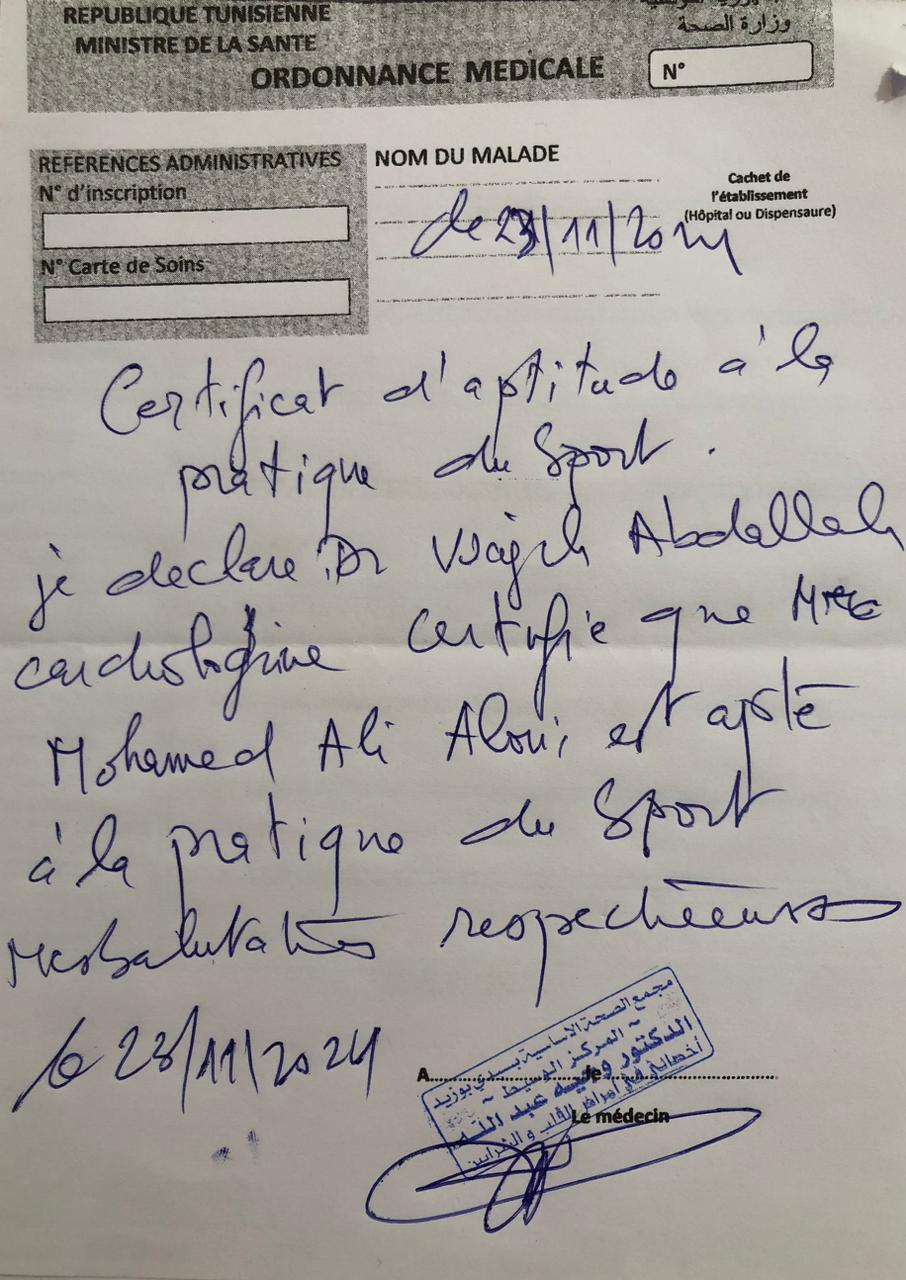 REPUBLIQUE TUNISIENNE
MINISTRE DE LA SANTE
وزارة الصحة
ORDONNANCE MEDICALE
N°
REFERENCES ADMINISTRATIVES
N° d'inscription
N° Carte de Soins
NOM DU MALADE
Cachet de
l'établissement
(Hôpital ou Dispensaure)
le 23/11/2024
Certificat d'aptitude à la
pratique du Sport.
je declare Dr Wajih Abdallah
cardiologue certifie que
Mohamed Ali Aloui est apte
à la pratique du Sport
Mes salutations respectueuses
le 23/11/2024
مجمع الصحة الأساسية بسيدي بوزيد
~ المركز الوسيط ~
الدكتور وجيه عبد الله
أخصائي في أمراض القلب و الشرايين
A
le
Le médecin